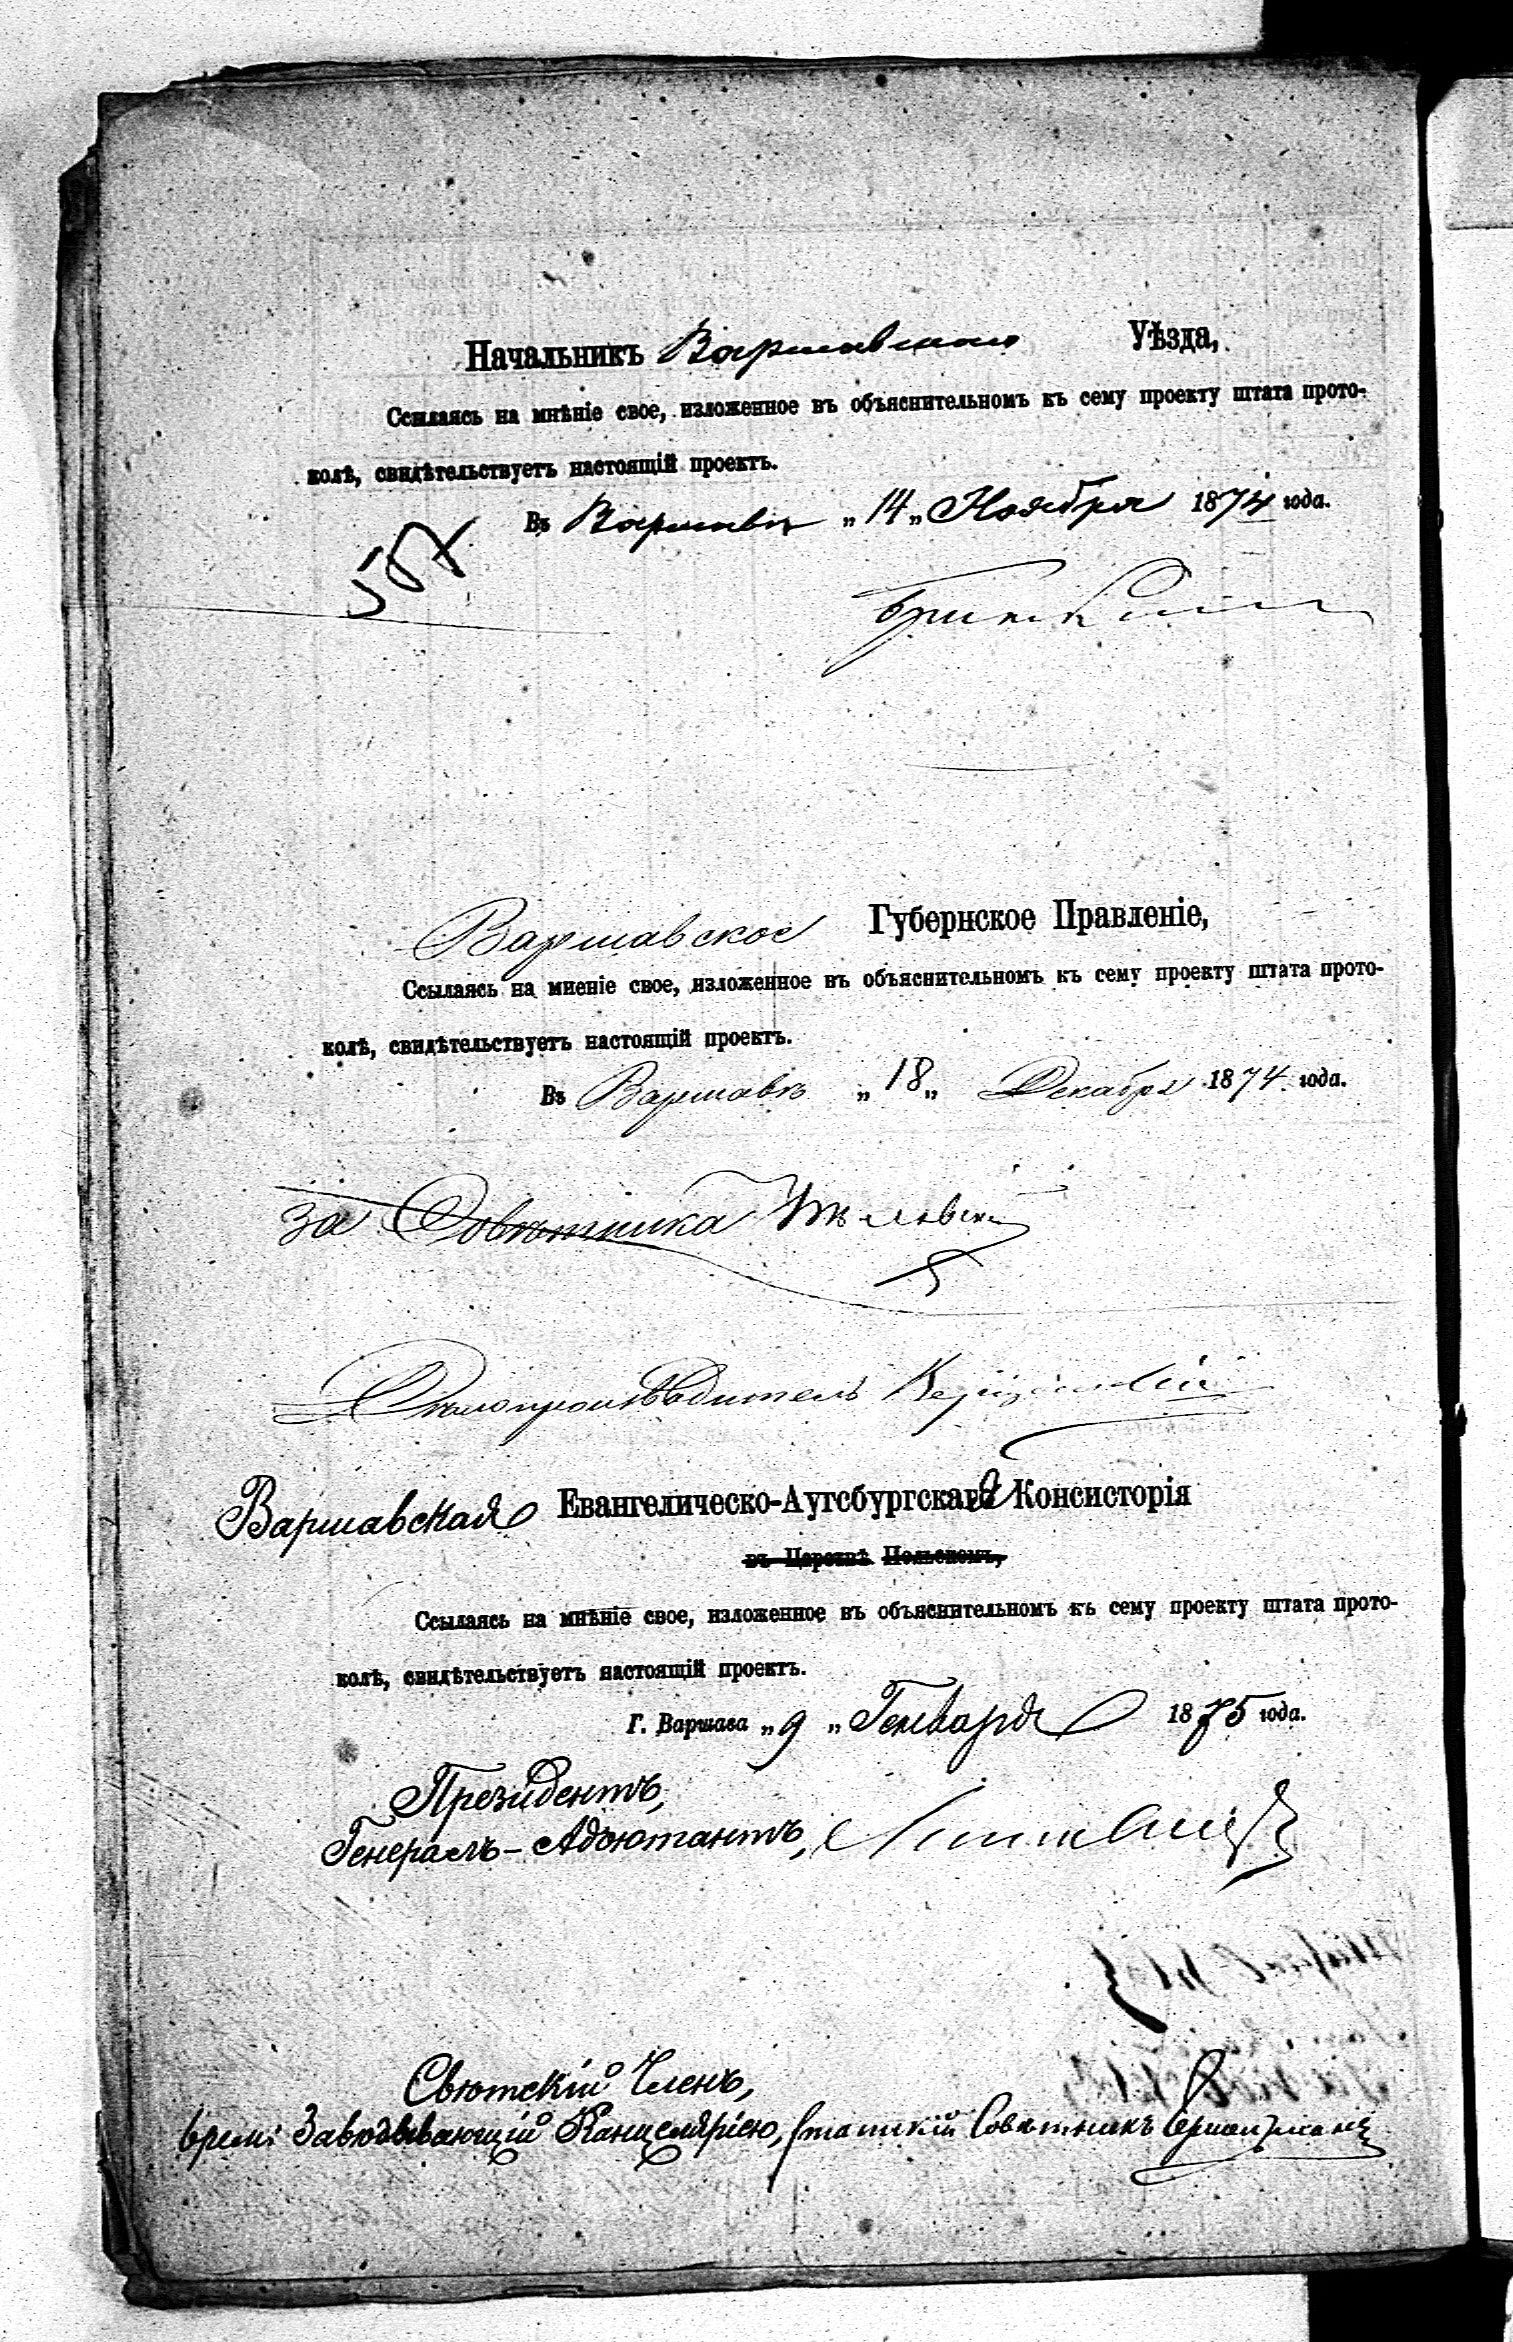 Начальникъ Варшавскаго Уѣзда,
Ссылаясь на мнѣніе свое, изложенное въ объяснительномъ къ сему проекту штата прото-
колѣ, свидѣтельствуетъ настоящій проектъ.
Въ Варшавѣ „14„ Ноября 1874 года.
Варшавское Губернское Правленіе,
Ссылаясь на мненіе свое, изложенное въ объяснительномъ къ сему проекту штата прото-
колѣ, свидѣтельствуетъ настоящій проектъ.
Въ Варшавѣ „18„ Декабря 1874 года.
За Совѣтника
Дѣлопроизводитель
Варшавская Евангелическо-Аугсбургская Консисторія
въ Царствѣ Польскомъ,
Ссылаясь на мнѣніе свое, изложенное въ объяснительномъ къ сему проекту штата прото-
колѣ, свидѣтельствуетъ настоящій проектъ.
Г. Варшава „9„ Генваря 1875 года.
Президентъ,
Генералъ-Адъютантъ,
Свѣтскій Членъ,
Завѣдывающій Канцеляріею, Статскій Совѣтникъ